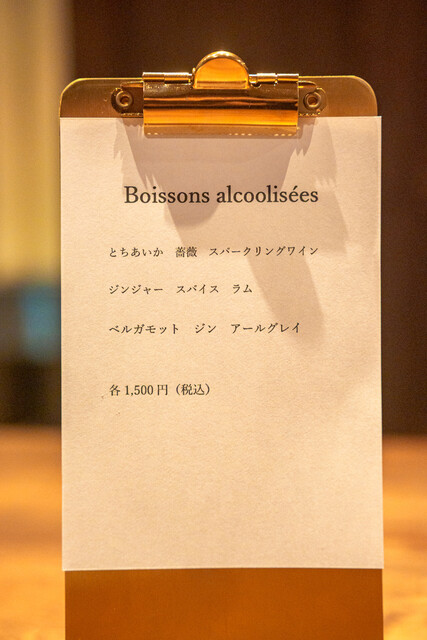 Boissons alcoolisées
とちあいか　薔薇　スパークリングワイン
ジンジャー　スパイス　ラム
ベルガモット　ジン　アールグレイ
各1,500円（税込）